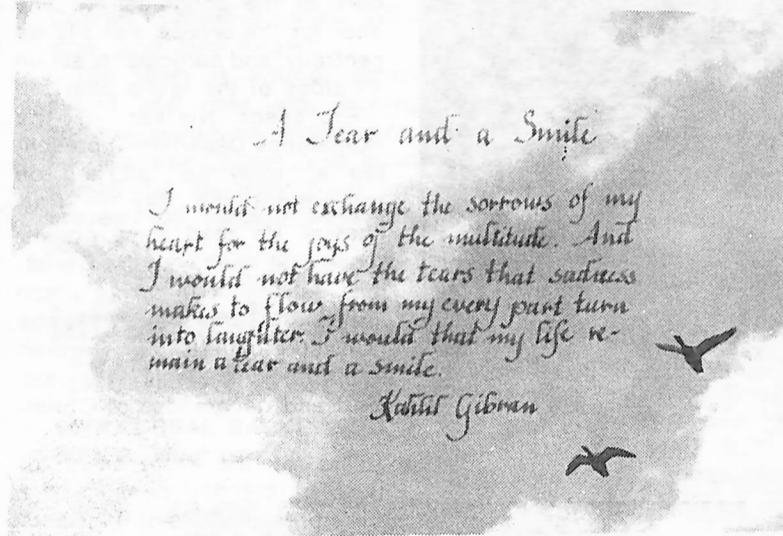 A Tear and a Smile
I would not exchange the sorrows of my
heart for the joys of the multitude. And
I would not have the tears that sadness
makes to flow from my every part turn
into laughter. I would that my life re-
main a tear and a smile.
Kahlil Gibran